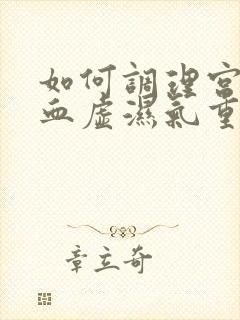 如何調理宮
血虛濕氣重
章立奇